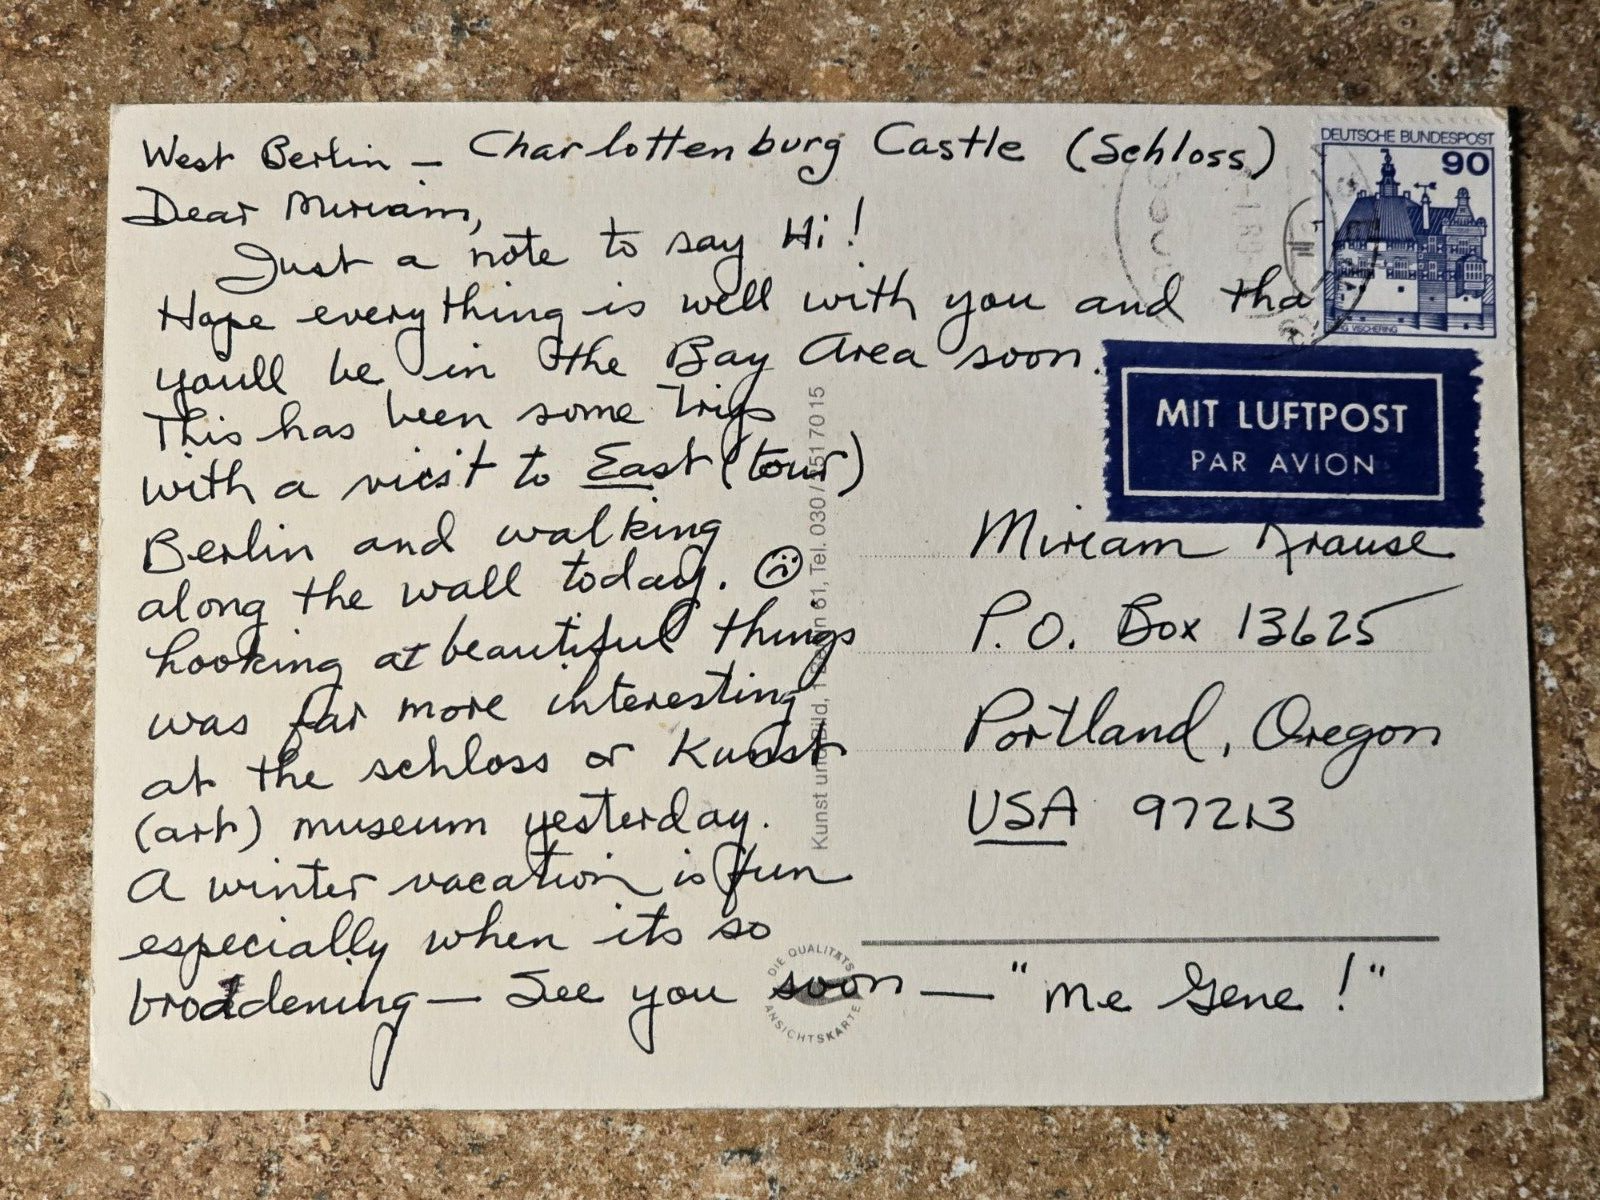 West Berlin — Charlottenburg Castle (Schloss)
Dear Miriam,
Just a note to say Hi!
Hope everything is well with you and tha
youll be in the Bay Area soon.
This has been some trip
with a visit to East (tour)
Berlin and walking
along the wall today. ☹
Looking at beautiful things
was far more interesting
at the schloss or Kunst
(art) museum yesterday.
A winter vacation is fun
especially when its so
broddening — See you soon — "me Gene!"
DEUTSCHE BUNDESPOST
90
VISCHERING
MIT LUFTPOST
PAR AVION
Miriam Krause
P.O. Box 13625
Portland, Oregon
USA 97213
Kunst und Bild, 61, Tel. 030 / 51 70 15
DIE QUALITÄTS
ANSICHTSKARTE